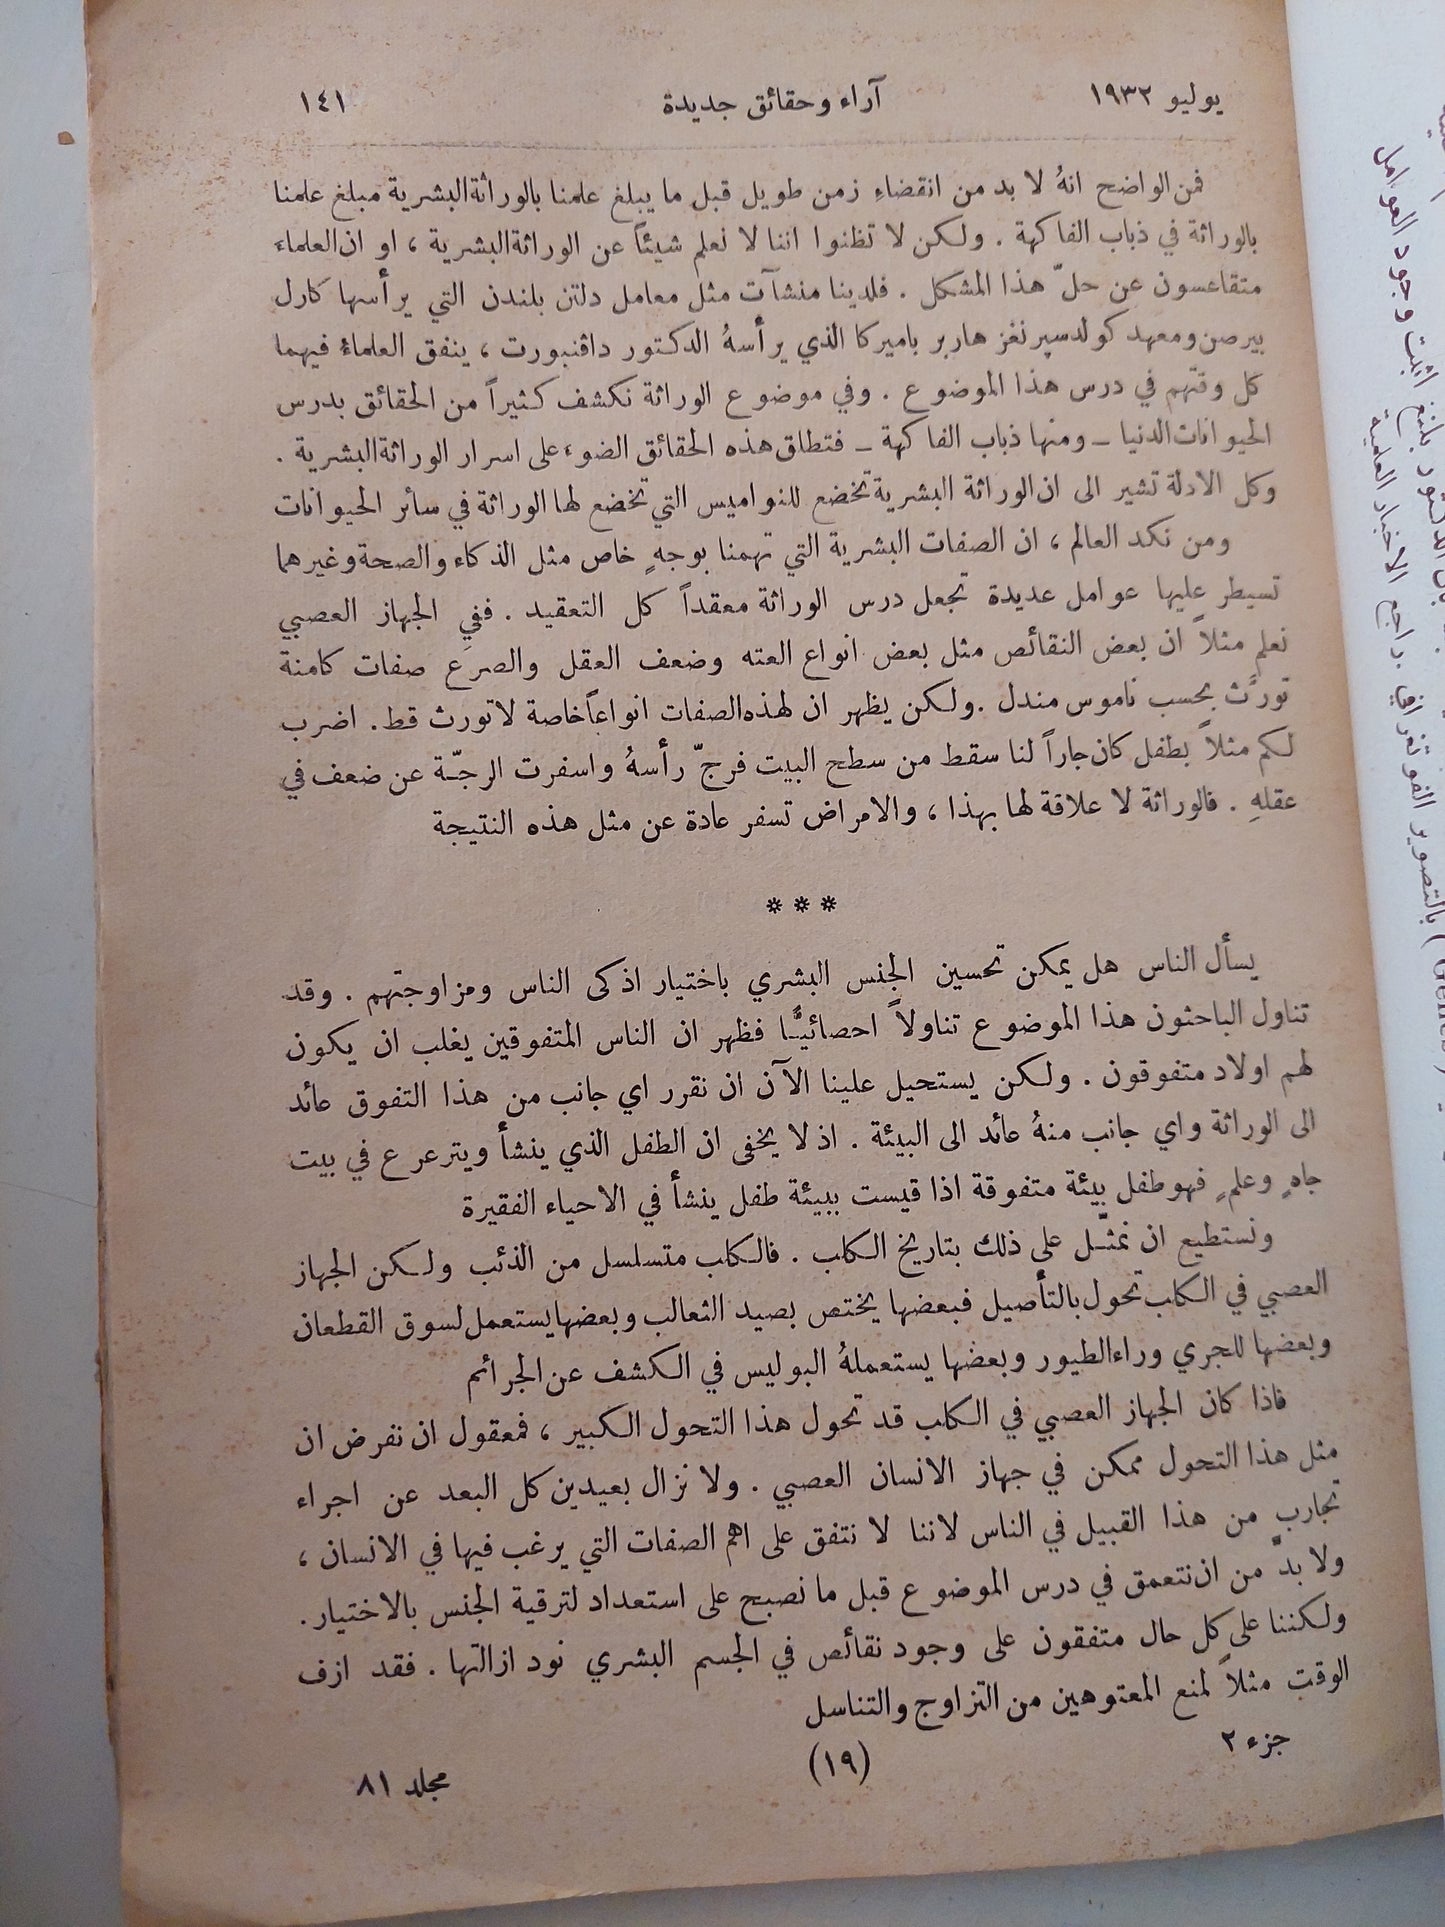 يوليو ١٩٣٢
آراء وحقائق جديدة
١٤١
فمن الواضح انهُ لا بد من انقضاءِ زمن طويل قبل ما يبلغ علمنا بالوراثة البشرية مبلغ علمنا
بالوراثة في ذباب الفاكهة . ولكن لا تظنوا اننا لا نعلم شيئاً عن الوراثة البشرية ، او ان العلماء
متقاعسون عن حلّ هذا المشكل . فلدينا منشآت مثل معامل دلتن بلندن التي يرأسها كارل
بيرصن ومعهد كولدسبرنغز هاربر باميركا الذي يرأسهُ الدكتور داڤنبورت ، ينفق العلماءُ فيهما
كل وقتهم في درس هذا الموضوع . وفي موضوع الوراثة نكشف كثيراً من الحقائق بدرس
الحيوانات الدنيا – ومنها ذباب الفاكهة – فتطلق هذه الحقائق الضوء على اسرار الوراثة البشرية .
وكل الادلة تشير الى ان الوراثة البشرية تخضع للنواميس التي تخضع لها الوراثة في سائر الحيوانات
ومن نكد العالم ، ان الصفات البشرية التي تهمنا بوجهٍ خاص مثل الذكاء والصحة وغيرهما
تسيطر عليها عوامل عديدة تجعل درس الوراثة معقداً كل التعقيد . ففي الجهاز العصبي
نعلم مثلاً ان بعض النقائص مثل بعض انواع العته وضعف العقل والصرَع صفات كامنة
تورَّث بحسب ناموس مندل . ولكن يظهر ان لهذه الصفات انواعاً خاصة لا تورث قط . اضرب
لكم مثلاً بطفل كان جاراً لنا سقط من سطح البيت فرجّ رأسهُ واسفرت الرجّة عن ضعف في
عقلهِ . فالوراثة لا علاقة لها بهذا ، والامراض تسفر عادة عن مثل هذه النتيجة
* * *
يسأل الناس هل يمكن تحسين الجنس البشري باختيار اذكى الناس ومزاوجتهم . وقد
تناول الباحثون هذا الموضوع تناولاً احصائيًّا فظهر ان الناس المتفوقين يغلب ان يكون
لهم اولاد متفوقون . ولكن يستحيل علينا الآن ان نقرر اي جانب من هذا التفوق عائد
الى الوراثة واي جانب منهُ عائد الى البيئة . اذ لا يخفى ان الطفل الذي ينشأ ويترعرع في بيت
جاهٍ وعلمٍ فهو طفل بيئة متفوقة اذا قيست ببيئة طفل ينشأ في الاحياء الفقيرة
ونستطيع ان نمثّل على ذلك بتاريخ الكلب . فالكلب متسلسل من الذئب ولكن الجهاز
العصبي في الكلب تحول بالتأصيل فبعضها يختص بصيد الثعالب وبعضها يستعمل لسوق القطعان
وبعضها للجري وراء الطيور وبعضها يستعملهُ البوليس في الكشف عن الجرائم
فاذا كان الجهاز العصبي في الكلب قد تحول هذا التحول الكبير ، فمعقول ان نفرض ان
مثل هذا التحول ممكن في جهاز الانسان العصبي . ولا نزال بعيدين كل البعد عن اجراء
تجارب من هذا القبيل في الناس لاننا لا نتفق على اهم الصفات التي يرغب فيها في الانسان ،
ولا بدَّ من ان نتعمق في درس الموضوع قبل ما نصبح على استعداد لترقية الجنس بالاختيار .
ولكننا على كل حال متفقون على وجود نقائص في الجسم البشري نود ازالتها . فقد ازف
الوقت مثلاً لمنع المعتوهين من التزاوج والتناسل
جزء ٢
(١٩)
مجلد ٨١